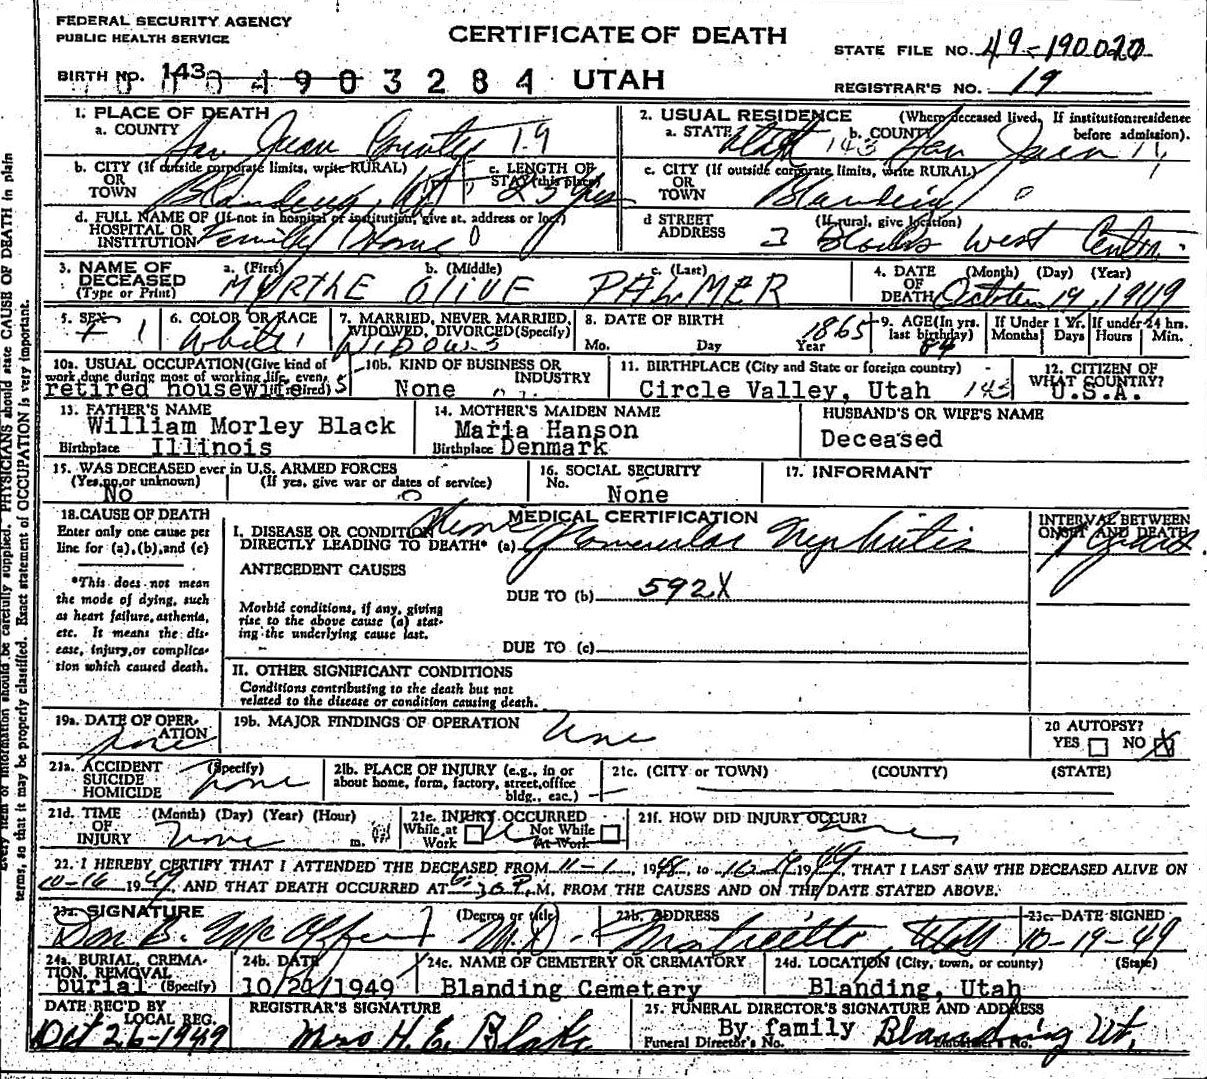 FEDERAL SECURITY AGENCY
PUBLIC HEALTH SERVICE
CERTIFICATE OF DEATH
STATE FILE NO. 49-190020
BIRTH NO. 143 4903284 UTAH
REGISTRAR'S NO. 19
1. PLACE OF DEATH
a. COUNTY San Juan County 19
2. USUAL RESIDENCE (Where deceased lived. If institution: residence before admission).
a. STATE Utah 143 b. COUNTY San Juan
b. CITY (If outside corporate limits, write RURAL) OR TOWN Blanding, Ut
c. LENGTH OF STAY (this place) 25 yrs
c. CITY (If outside corporate limits, write RURAL) OR TOWN Blanding
d. FULL NAME OF (If not in hospital or institution, give st. address or loc.) HOSPITAL OR INSTITUTION Family Home
d STREET ADDRESS (If rural, give location) 3 Blocks West Center.
3. NAME OF DECEASED (Type or Print) a. (First) MYRTHE b. (Middle) OLIVE c. (Last) PALMER
4. DATE OF DEATH (Month) (Day) (Year) October 19, 1949
5. SEX F 1
6. COLOR OR RACE White 1
7. MARRIED, NEVER MARRIED, WIDOWED, DIVORCED (Specify) WIDOWS
8. DATE OF BIRTH Mo. Day Year 1865
9. AGE (In yrs. last birthday) 84
If Under 1 Yr. Months Days
If under 24 hrs. Hours Min.
10a. USUAL OCCUPATION (Give kind of work done during most of working life, even if retired) retired housewife 5
10b. KIND OF BUSINESS OR INDUSTRY None
11. BIRTHPLACE (City and State or foreign country) Circle Valley, Utah 143
12. CITIZEN OF WHAT COUNTRY? U.S.A.
13. FATHER'S NAME William Morley Black
Birthplace Illinois
14. MOTHER'S MAIDEN NAME Maria Hanson
Birthplace Denmark
HUSBAND'S OR WIFE'S NAME Deceased
15. WAS DECEASED ever in U.S. ARMED FORCES
(Yes, no, or unknown) No (If yes, give war or dates of service) 0
16. SOCIAL SECURITY No. None
17. INFORMANT
18. CAUSE OF DEATH
Enter only one cause per line for (a), (b), and (c)
*This does not mean the mode of dying, such as heart failure, asthenia, etc. It means the disease, injury, or complication which caused death.
MEDICAL CERTIFICATION
I. DISEASE OR CONDITION DIRECTLY LEADING TO DEATH* (a) Glomerular Nephritis
INTERVAL BETWEEN ONSET AND DEATH years.
ANTECEDENT CAUSES
DUE TO (b) 592X
Morbid conditions, if any, giving rise to the above cause (a) stating the underlying cause last.
DUE TO (c)
II. OTHER SIGNIFICANT CONDITIONS
Conditions contributing to the death but not related to the disease or condition causing death.
19a. DATE OF OPERATION none
19b. MAJOR FINDINGS OF OPERATION none
20 AUTOPSY? YES NO X
21a. ACCIDENT SUICIDE HOMICIDE (Specify) none
21b. PLACE OF INJURY (e.g., in or about home, farm, factory, street, office bldg., eac.)
21c. (CITY OR TOWN) (COUNTY) (STATE)
21d. TIME OF INJURY (Month) (Day) (Year) (Hour) none m.
21e. INJURY OCCURRED While at Work Not While At Work
21f. HOW DID INJURY OCCUR? none
22. I HEREBY CERTIFY THAT I ATTENDED THE DECEASED FROM 11-1, 1948, to 10-19, 1949, THAT I LAST SAW THE DECEASED ALIVE ON
10-16 1949, AND THAT DEATH OCCURRED AT 6:30 P. M, FROM THE CAUSES AND ON THE DATE STATED ABOVE.
23a. SIGNATURE Don B. (Degree or title) M.D.
23b. ADDRESS Monticello, Utah
23c. DATE SIGNED 10-19-49
24a. BURIAL, CREMATION, REMOVAL (Specify) burial
24b. DATE 10/21/1949
24c. NAME OF CEMETERY OR CREMATORY Blanding Cemetery
24d. LOCATION (City, town, or county) (State) Blanding, Utah
DATE REC'D BY LOCAL REG. Oct 26-1949
REGISTRAR'S SIGNATURE Mrs H. E. Blake
25. FUNERAL DIRECTOR'S SIGNATURE AND ADDRESS By family Blanding Ut.
Funeral Director's No.
Every item of information should be carefully supplied. PHYSICIANS should state CAUSE OF DEATH in plain
terms, so that it may be properly classified. Exact statement of OCCUPATION is very important.